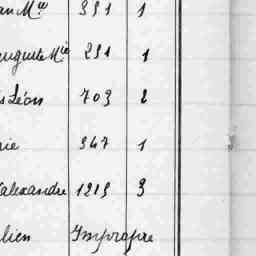 an Mie 391 1
auguste Mie 291 1
s Léon 703 2
rie 347 1
alexandre 1219 3
lien Impropre